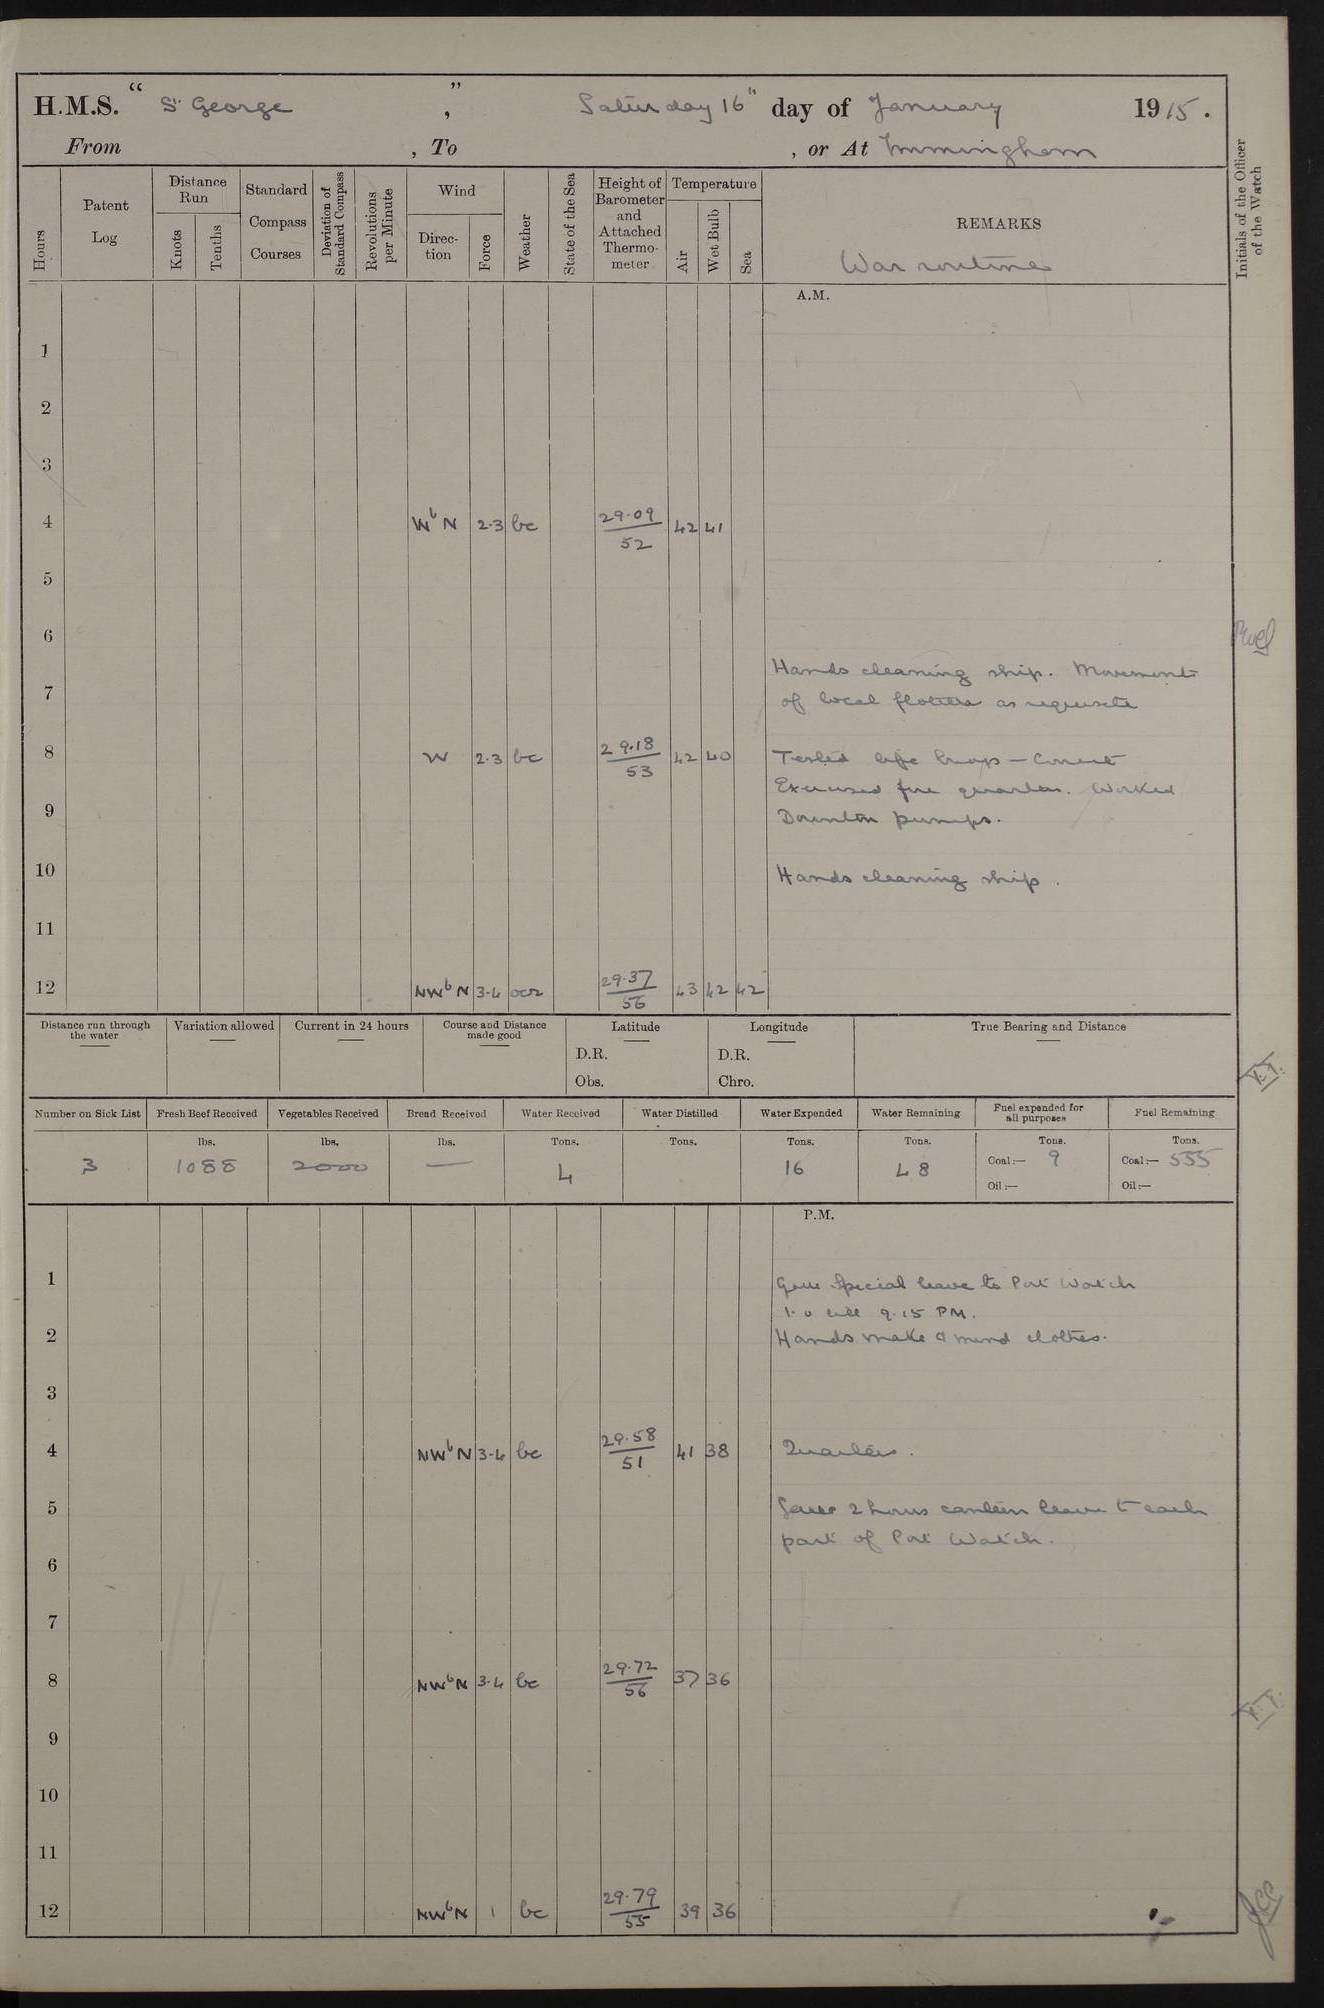 H.M.S. “ St George ”, Saturday 16" day of January 1915.
From , To , or At Immingham
Hours
Patent Log
Distance Run
Knots
Tenths
Standard Compass Courses
Deviation of Standard Compass
Revolutions per Minute
Wind
Direction
Force
Weather
State of the Sea
Height of Barometer and Attached Thermometer
Temperature
Air
Wet Bulb
Sea
REMARKS
War routine
Initials of the Officer of the Watch
A.M.
1
2
3
4 WbN 2.3 bc 29.09/52 42 41
5
6
Hands cleaning ship. Movements
7
of local flotilla as requisite
8 W 2.3 bc 29.18/53 42 40 Tested life buoys – Correct
Exercised fire quarters. Worked
9 Downton pumps.
10 Hands cleaning ship.
11
12 NWbN 3.4 ocr 29.37/56 43 42 42
Distance run through the water
Variation allowed
Current in 24 hours
Course and Distance made good
Latitude
D.R.
Obs.
Longitude
D.R.
Chro.
True Bearing and Distance
K.T.
Number on Sick List
Fresh Beef Received
Vegetables Received
Bread Received
Water Received
Water Distilled
Water Expended
Water Remaining
Fuel expended for all purposes
Fuel Remaining
lbs. lbs. lbs. Tons. Tons. Tons. Tons. Tons. Tons.
3 1088 2000 — 4 16 48 Coal:— 9 Coal:— 535
Oil:— Oil:—
P.M.
1 Gave Special leave to Port Watch
1.0 till 9.15 PM.
2 Hands make & mend clothes.
3
4 NWbN 3-4 bc 29.58/51 41 38 Quarters.
5 Gave 2 hours canteen leave to each
part of Port Watch.
6
7
8 NWbN 3.4 bc 29.72/56 37 36
K.T.
9
10
11
12 NWbN 1 bc 29.79/55 39 36